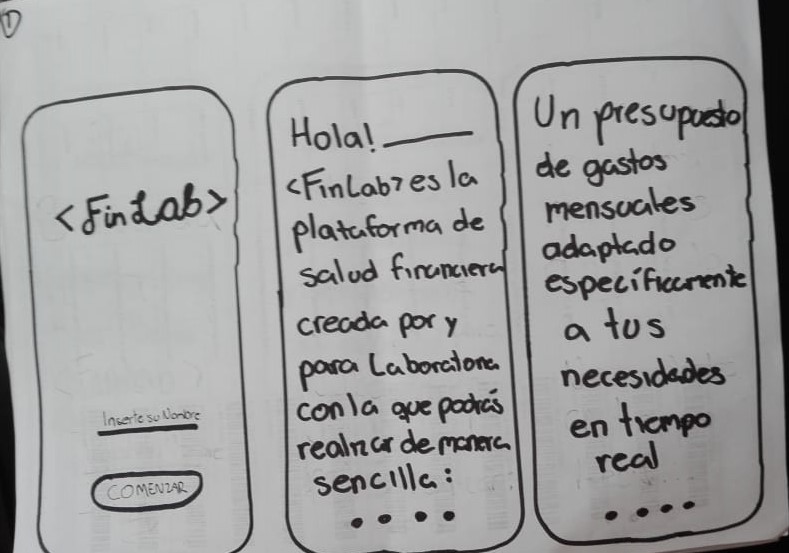 1
<FinLab>
Inserte su Nombre
COMENZAR
Hola! ______
<FinLab> es la
plataforma de
salud financiera
creada por y
para Laboratoria
con la que podrás
realizar de manera
sencilla:
Un presupuesto
de gastos
mensuales
adaptado
específicamente
a tus
necesidades
en tiempo
real